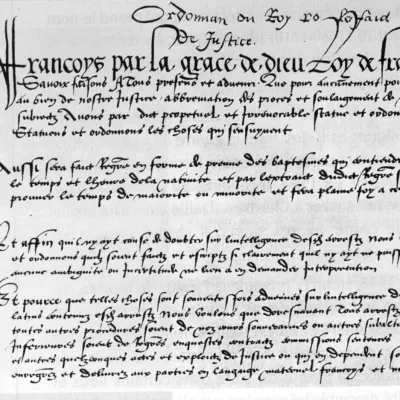 Ordonnan du Roy
De Justice.
Francoys par la grace de dieu Roy de fra
Scavoir faisons A tous presens et advenir Que pour aucunement pou
au bien de nostre Justice abbreviation des proces et soulagement de
subiectz Avons par edict perpetuel et Irrevocable statue et ordonn
Statuons et ordonnons les choses qui sensuyvent
Aussi sera faict Regre en forme de preuve des baptesmes qui contiendr
le temps et lheure de la nativite et par lextraict dudict Regre s
prouver le temps de maiorite ou minorite et fera plaine foy a c
Et affin quil ny ayt cause de doubter sur lintelligence desdz arrestz Nous
et ordonnons quilz soient faictz et escriptz si clairement quil ny ayt ne puiss
aucune ambiguite ou Incertitude ne lieu a en demander Interpretation
Et pource que telles choses sont souventesfois advenues sur lintelligence de
latins contenuz esdz arrestz Nous voulons que doresnavant Tous arrestz
toutes autres procedures soient de noz cours souveraines ou autres subalte
Inferieures soient de Regres enquestes contractz commissions sentences
et autres quelzconques actes et exploictz de Justice ou qui en dependent so
enregrez et delivrez aux parties en langaige maternel francoys et n